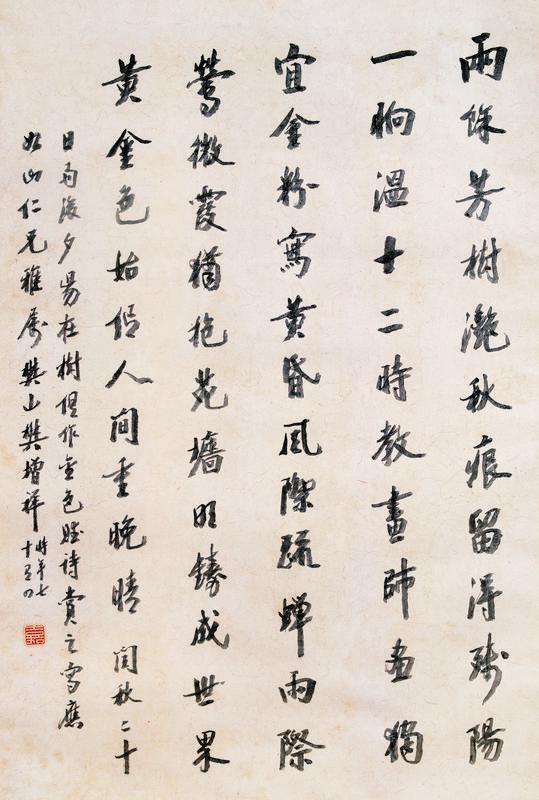 雨餘芳樹灧秋痕留得殘陽
一晌溫十二時教畫師畫獨
宜金粉寫黃昏風際疏蟬雨際
鶯微霞猶抱苑墻明鑄成世界
黃金色始信人間重晚晴 閏秋二十
日雨後夕昜在樹俱作金色賦詩賞之寫應
如山仁兄雅屬 樊山樊增祥 時年七十有四